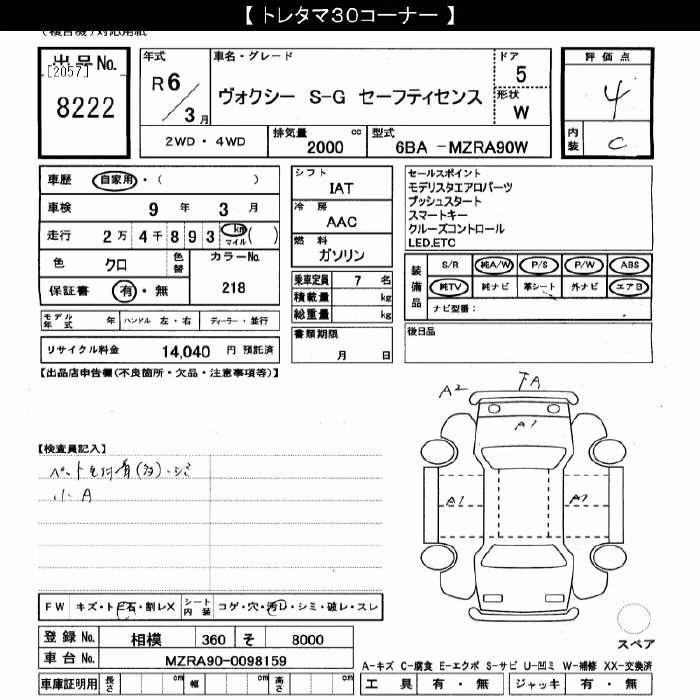 【 トレタマ30コーナー 】
(複合機)対応用紙
出品No.
[2057]
8222
年式
R 6
3 月
車名・グレード
ヴォクシー S-G セーフティセンス
ドア
5
形状
W
2WD・4WD
排気量
2000 cc
型式
6BA -MZRA90W
評価点
4
内装
C
車歴 自家用・( )
車検 9 年 3 月
走行 2万 4千 8 9 3 km マイル ( )
色 クロ
色替
カラーNo.
218
保証書 有・無
シフト
IAT
冷房
AAC
燃料
ガソリン
乗車定員 7 名
積載量 kg
総重量 kg
書類期限
月 日
セールスポイント
モデリスタエアロパーツ
プッシュスタート
スマートキー
クルーズコントロール
LED,ETC
装備品
S/R 純A/W P/S P/W ABS
純TV 純ナビ 革シート 外ナビ エアB
ナビ型番:
後日品
モデル年式 年 ハンドル 左・右 ディーラー・並行
リサイクル料金 14,040 円 預託済
【出品店申告欄(不良箇所・欠品・注意事項等)】
【検査員記入】
小A
A2
A1
A1
FW キズ・トビ石・割レX
シート内装 コゲ・穴・汚レ・シミ・破レ・スレ
登録No. 相模 360 そ 8000
車台No. MZRA90-0098159
車庫証明用 長さ cm 幅 cm 高さ cm
スペア
A-キズ C-腐食 E-エクボ S-サビ U-凹ミ W-補修 XX-交換済
工具 有・無 ジャッキ 有・無